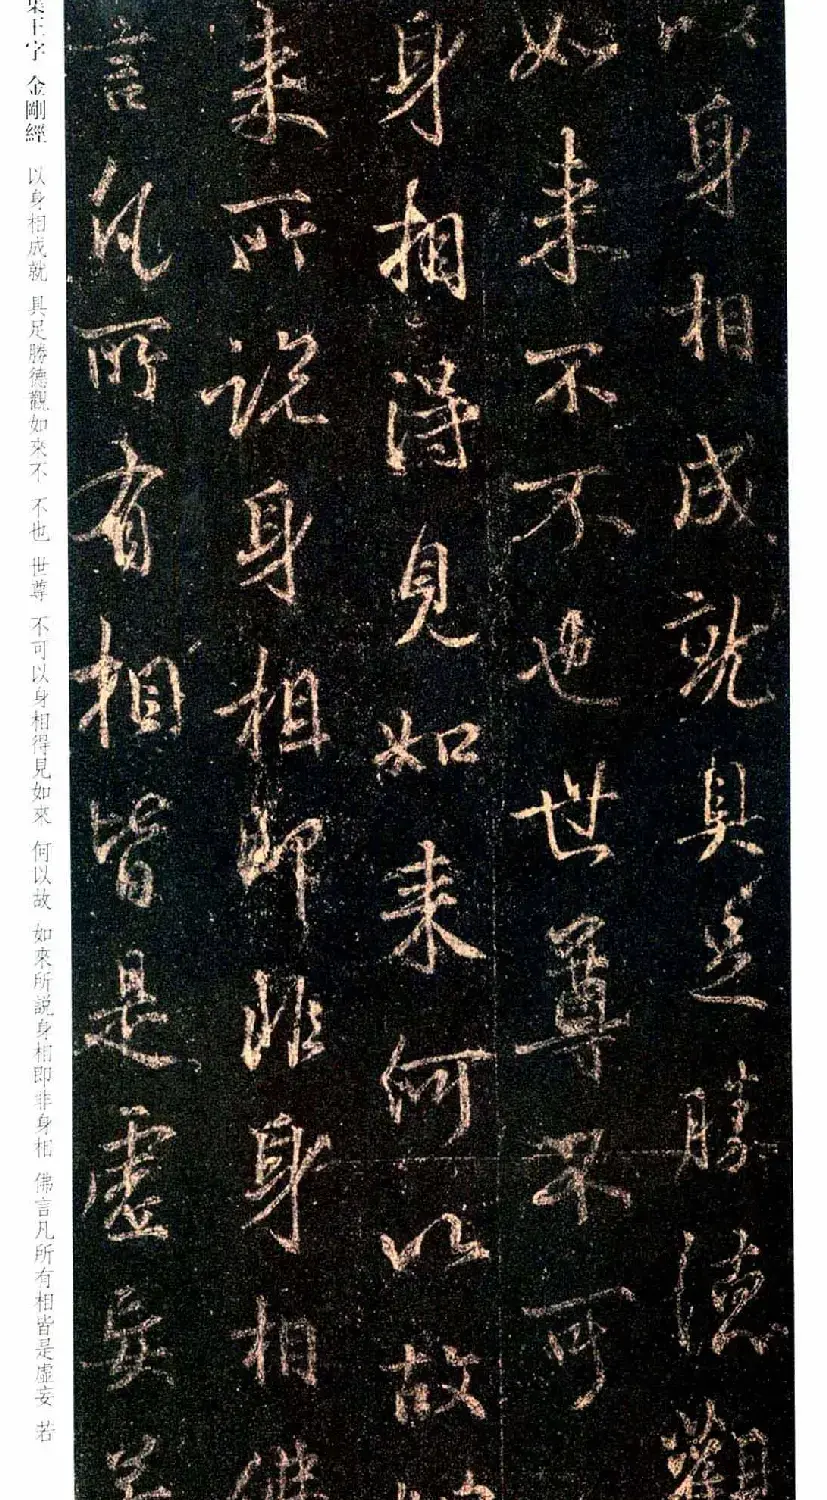 以身相成就具足勝德觀
如来不不也世尊不可
身相得見如来何以故如
来所說身相即非身相佛
言凡所有相皆是虛妄若
集王字 金剛經 以身相成就 具足勝德觀如來不 不也 世尊 不可以身相得見如來 何以故 如來所說身相即非身相 佛言凡所有相皆是虛妄 若